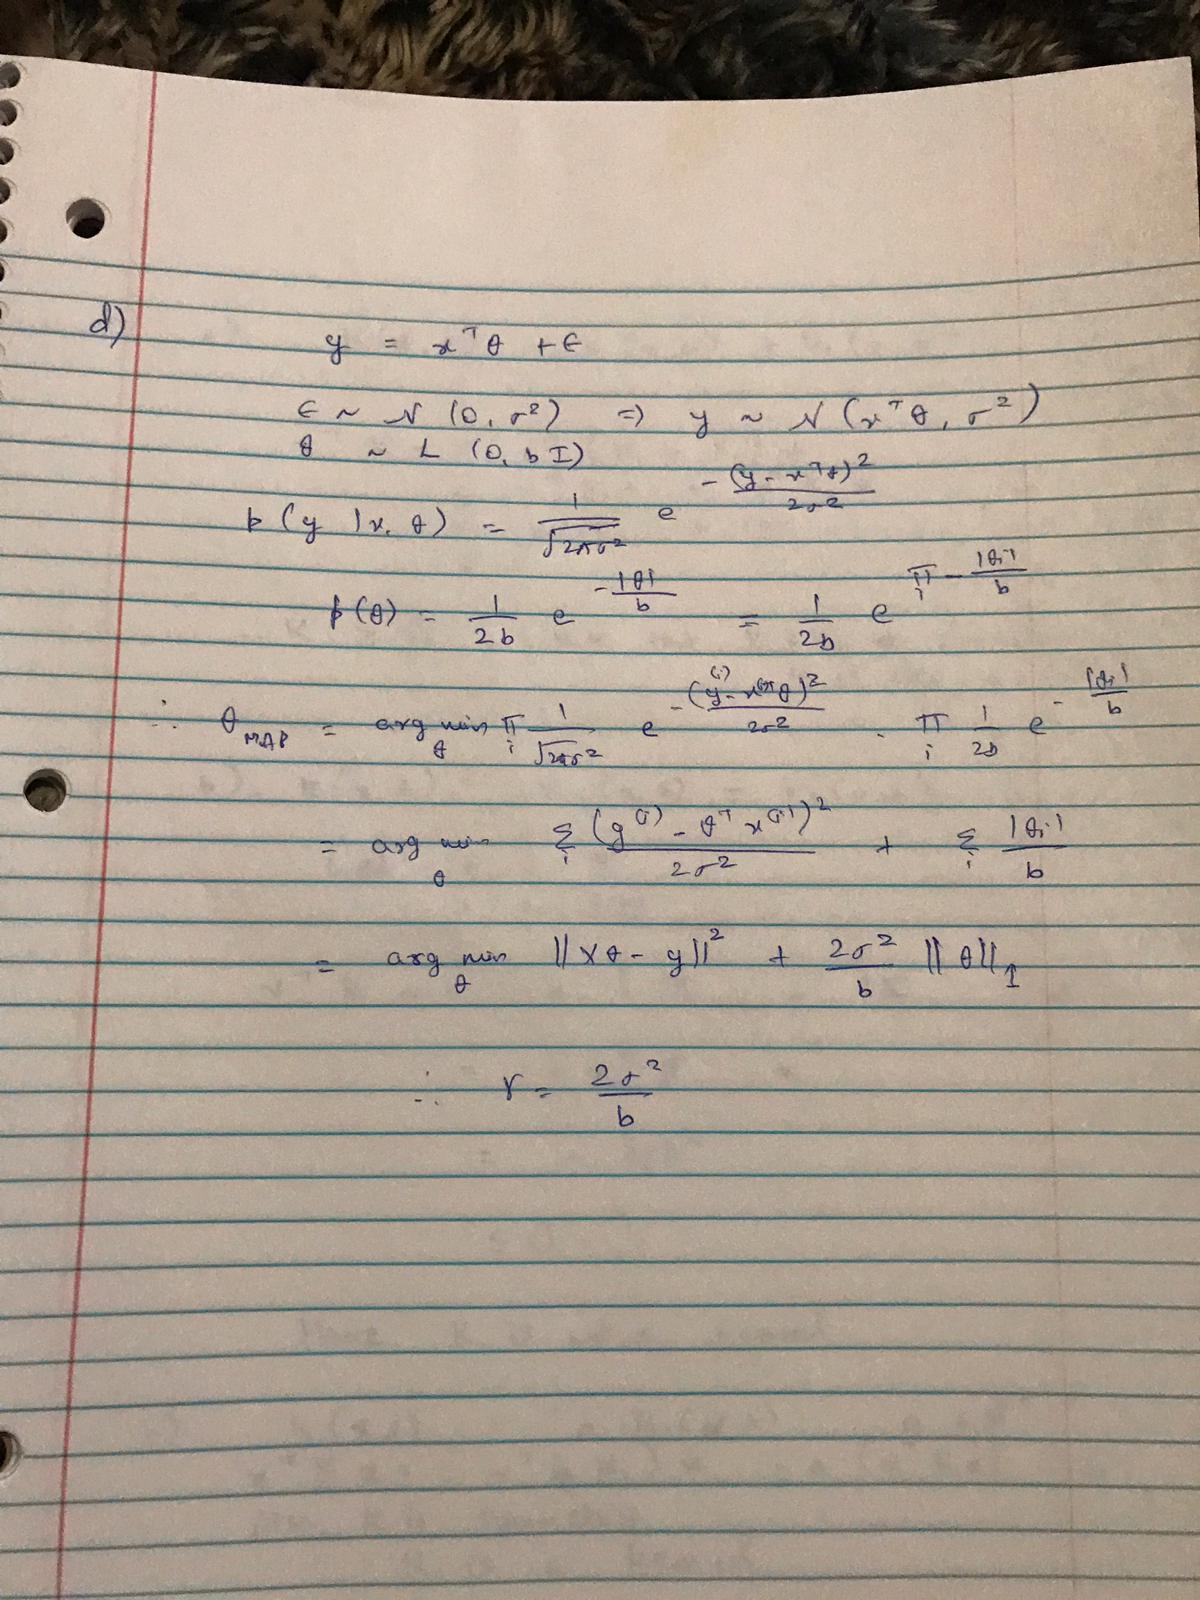 d)
y = x^T θ + ε
ε ~ N (0, σ²) ⇒ y ~ N (x^T θ, σ²)
θ ~ L (0, b I)
p (y | x, θ) = 1/√(2πσ²) e^{-(y - x^T θ)²/(2σ²)}
p(θ) = 1/(2b) e^{-|θ|/b} = 1/(2b) e^{∏_i -|θ_i|/b}
∴ θ_MAP = arg min_θ ∏_i 1/√(2πσ²) e^{-(y^(i) - x^(i)T θ)²/(2σ²)} . ∏_i 1/(2b) e^{-|θ_i|/b}
= arg min_θ Σ_i (y^(i) - θ^T x^(i))²/(2σ²) + Σ_i |θ_i|/b
= arg min_θ ||Xθ - y||² + 2σ²/b ||θ||_1
∴ γ = 2σ²/b